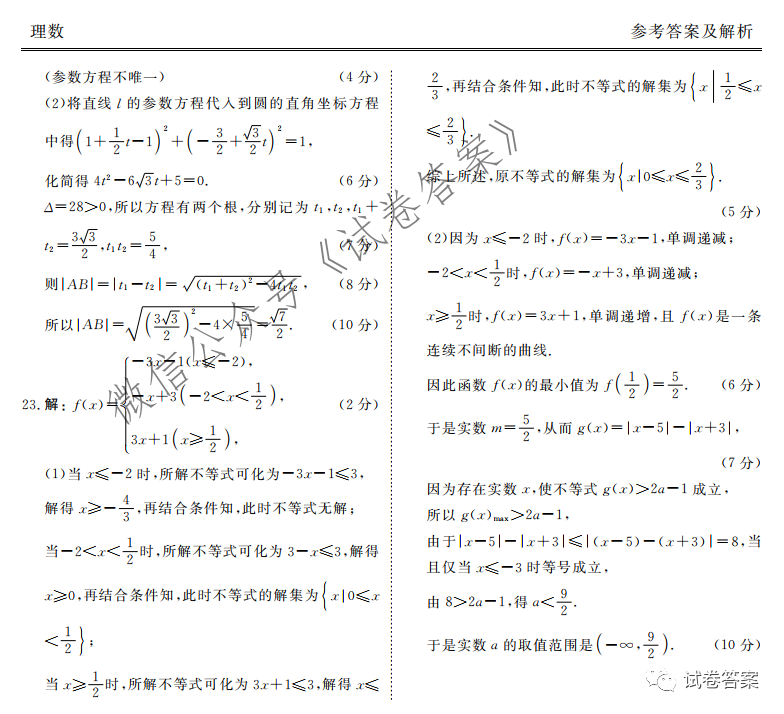 理数
参考答案及解析
(参数方程不唯一) (4 分)
(2)将直线 l 的参数方程代入到圆的直角坐标方程
中得(1+1/2t-1)²+(-3/2+√3/2t)²=1,
化简得 4t²-6√3t+5=0. (6 分)
Δ=28>0,所以方程有两个根,分别记为 t₁,t₂,t₁+
t₂=3√3/2,t₁t₂=5/4, (7 分)
则|AB|=|t₁-t₂|=√((t₁+t₂)²-4t₁t₂), (8 分)
所以|AB|=√((3√3/2)²-4×5/4)=√7/2. (10 分)
23.解:f(x)={-3x-1(x≤-2), -x+3(-2<x<1/2), 3x+1(x≥1/2), (2 分)
(1)当 x≤-2 时,所解不等式可化为-3x-1≤3,
解得 x≥-4/3,再结合条件知,此时不等式无解;
当-2<x<1/2时,所解不等式可化为 3-x≤3,解得
x≥0,再结合条件知,此时不等式的解集为{x|0≤x
<1/2};
当 x≥1/2时,所解不等式可化为 3x+1≤3,解得 x≤
2/3,再结合条件知,此时不等式的解集为{x|1/2≤x
≤2/3}.
综上所述,原不等式的解集为{x|0≤x≤2/3}.
(5 分)
(2)因为 x≤-2 时,f(x)=-3x-1,单调递减;
-2<x<1/2时,f(x)=-x+3,单调递减;
x≥1/2时,f(x)=3x+1,单调递增,且 f(x)是一条
连续不间断的曲线.
因此函数 f(x)的最小值为 f(1/2)=5/2. (6 分)
于是实数 m=5/2,从而 g(x)=|x-5|-|x+3|,
(7 分)
因为存在实数 x,使不等式 g(x)>2a-1 成立,
所以 g(x)max>2a-1,
由于|x-5|-|x+3|≤|(x-5)-(x+3)|=8,当
且仅当 x≤-3 时等号成立,
由 8>2a-1,得 a<9/2.
于是实数 a 的取值范围是(-∞,9/2). (10 分)
微信公众号《试卷答案》
试卷答案